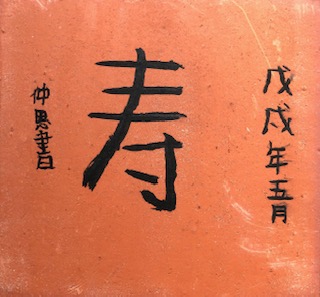 戊戌年五月
寿
仲恩書